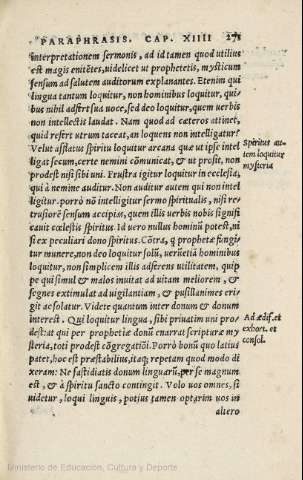 PARAPHRASIS. CAP. XIIII 278
interpretationem sermonis, ad id tamen quod utilius
est magis enitētes, uidelicet ut prophetetis, mysticum
sensum ad salutem auditorum explanantes. Etenim qui
lingua tantum loquitur, non hominibus loquitur, qui-
bus nihil adfert suæ uoce, sed deo loquitur, quem uerbis
non intellectis laudat. Nam quod ad cæteros attinet,
quid refert utrum taceat, an loquens non intelligatur?
Velut afflatus spiritu loquitur arcana quæ ut ipse intel
ligat secum, certe nemini cōmunicat, & ut prosit, non
prodest nisi sibi uni. Frustra igitur loquitur in ecclesia,
qui à nemine auditur. Non auditur autem qui non intel
ligitur. porrò nō intelligitur sermo spiritualis, nisi re-
trusiorē sensum accipias, quem illis uerbis nobis signifi
cauit cœlestis spiritus. Id uero nullus hominū potest, ni
si ex peculiari dono spiritus. Cōtra, q prophetæ fungi-
tur munere, non deo loquitur solū, uerūetiā hominibus
loquitur, non simplicem illis adferens utilitatem, quip-
pe qui simul & malos inuitat ad uitam meliorem, &
segnes extimulat ad uigilantiam, & pusillanimes eri-
git ac solatur. Videte quantum inter donum & donum
interest. Qui loquitur lingua, sibi priuatim uni pro-
dest: at qui per prophetiæ donū enarrat scripturæ my
steria, toti prodest cōgregatiōi. Porrò bonū quo latius
patet, hoc est præstabilius, itaq; repetam quod modo di
xeram: Ne fastidiatis donum linguarū, per se magnum
est, & à spiritu sancto contingit. Volo uos omnes, si
uidetur, loqui linguis, potius tamen optarim uos in
altero
Spiritus au-
tem loquitur
mysteria
Ad ædif. et
exhort. et
consol.
Ministerio de Educación, Cultura y Deporte